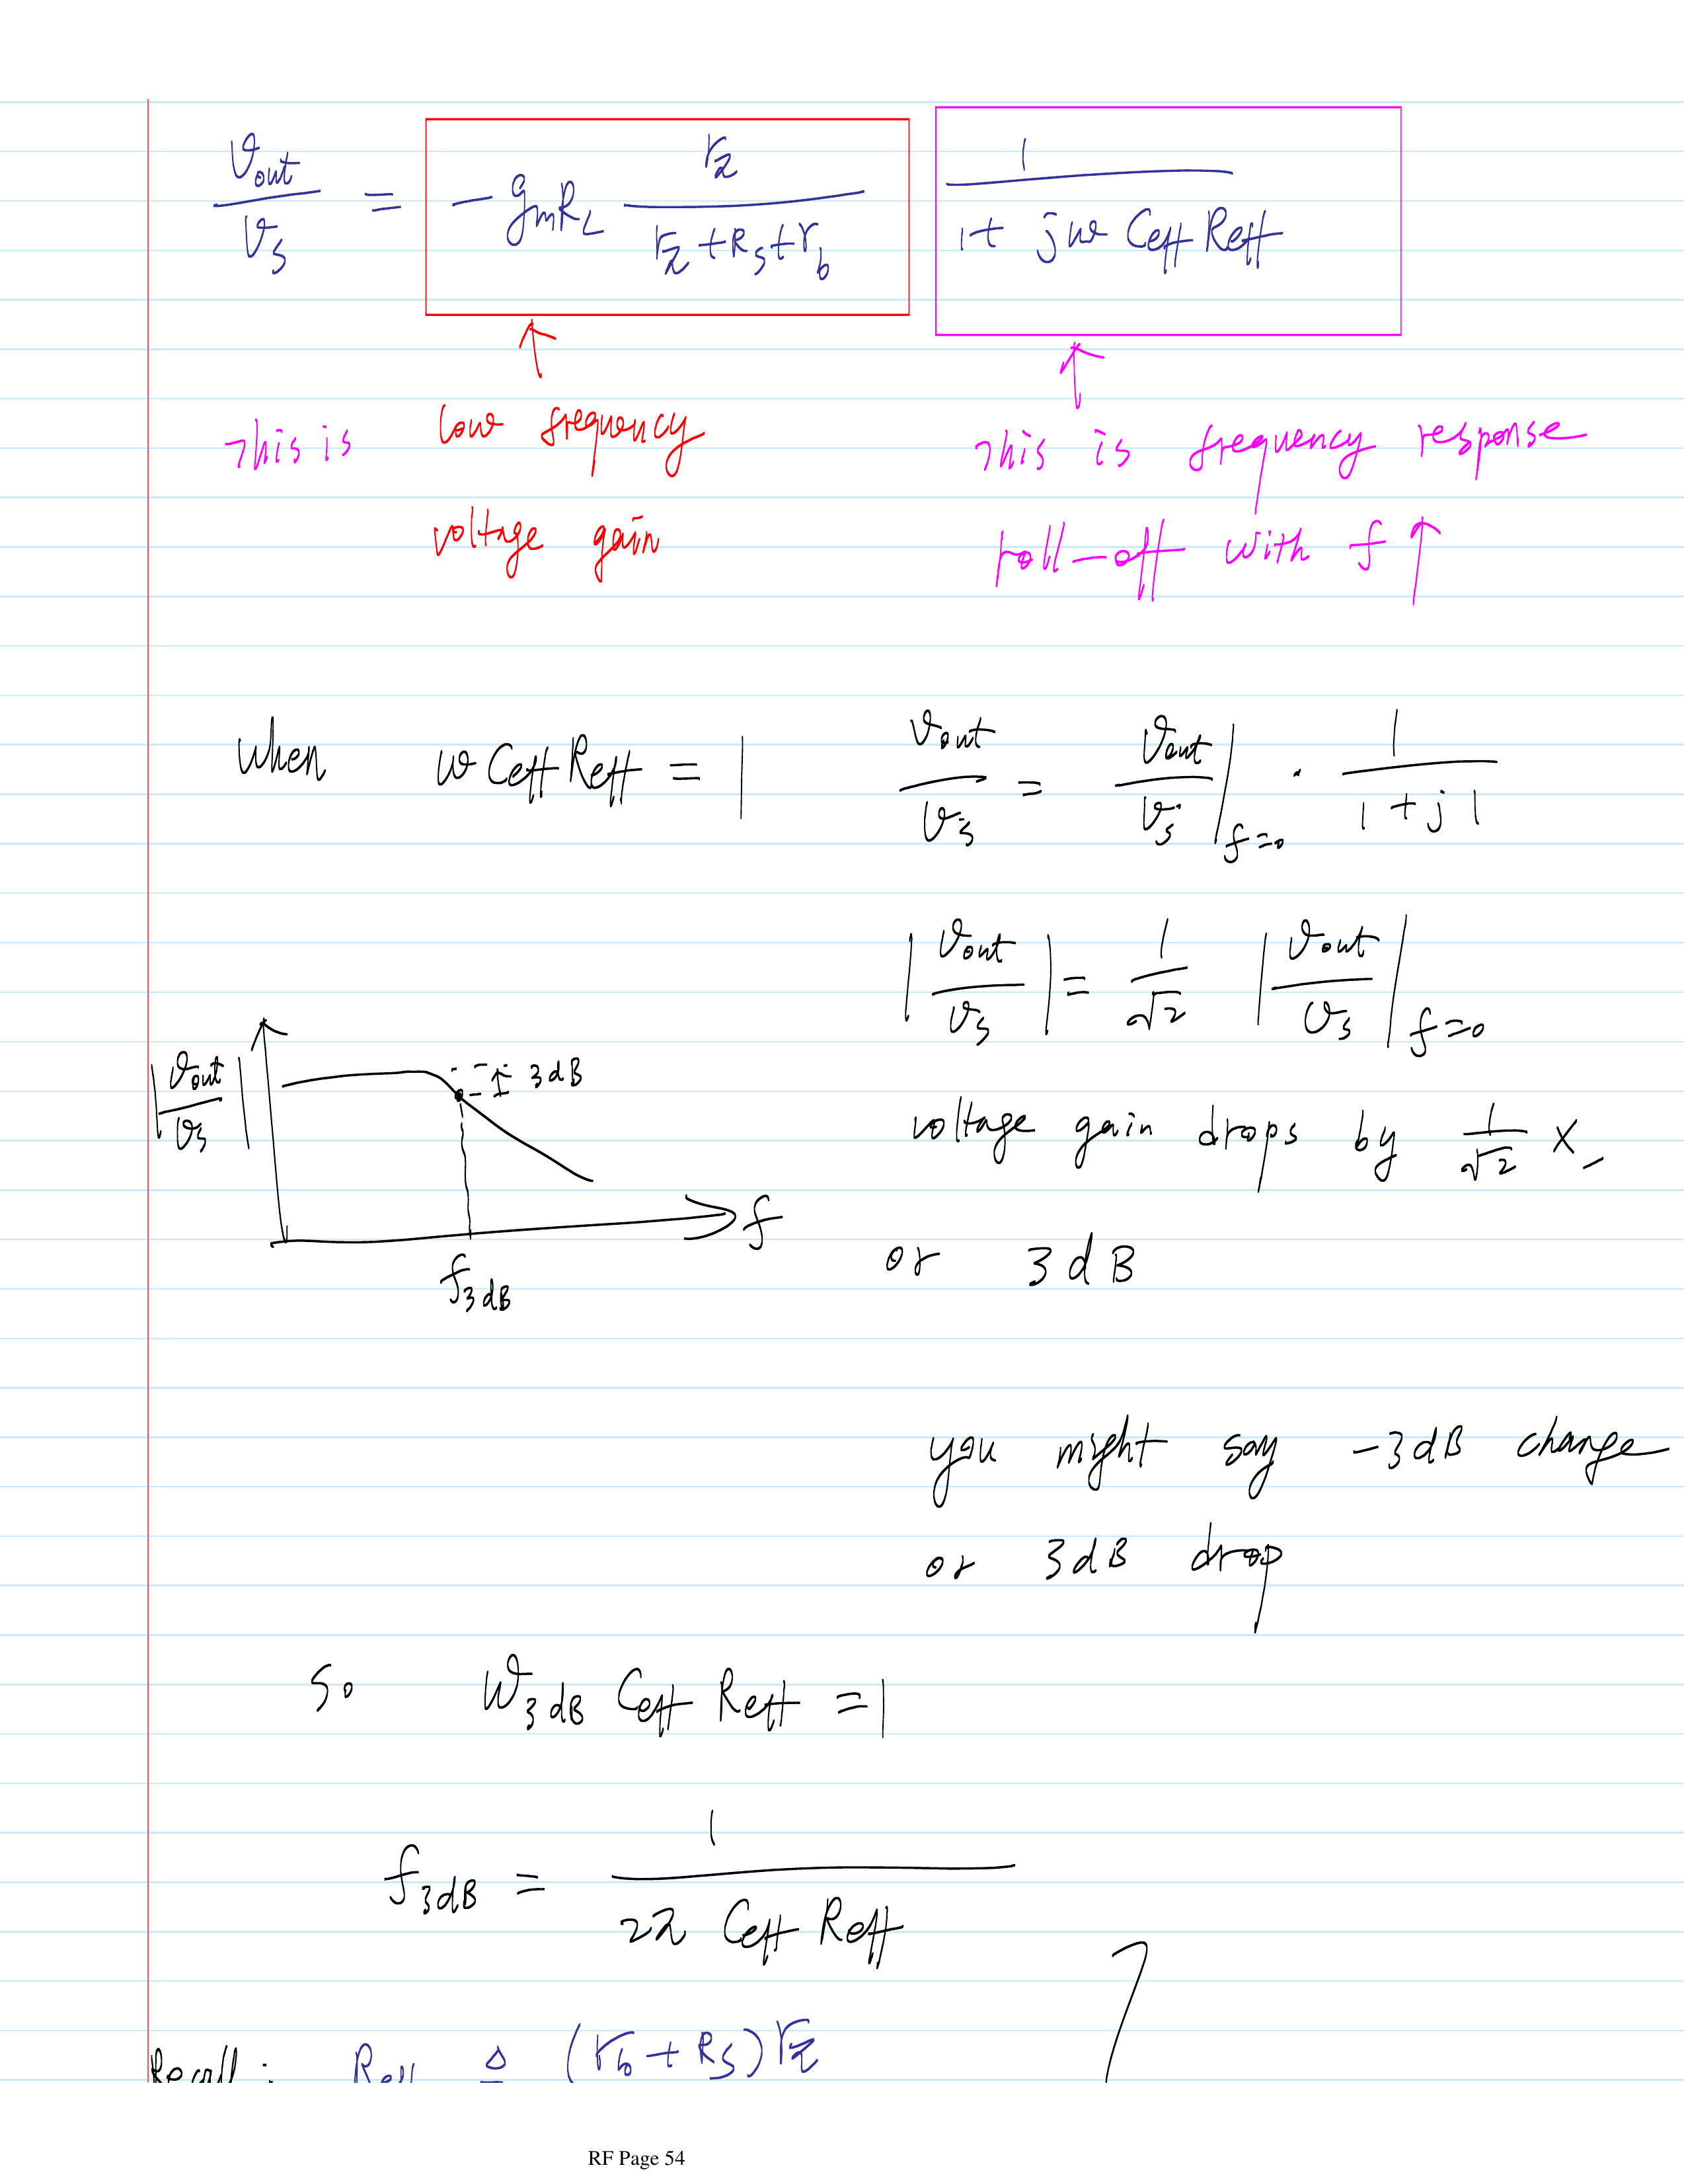 v_out / v_s = -g_m R_L r_π / (r_π + R_s + r_b) 1 / (1 + jω C_eff R_eff)
This is low frequency
voltage gain
This is frequency response
roll-off with f ↑
when ω C_eff R_eff = 1 v_out / v_s = v_out / v_s |_f=0 · 1 / (1 + j1)
|v_out / v_s| = 1/√2 |v_out / v_s|_f=0
|v_out / v_s|
3dB
f
f_3dB
voltage gain drops by 1/√2 x
or 3dB
you might say -3dB change
or 3dB drop
So ω_3dB C_eff R_eff = 1
f_3dB = 1 / (2π C_eff R_eff)
Recall: R_eff ≜ (r_b + R_s) r_π
RF Page 54